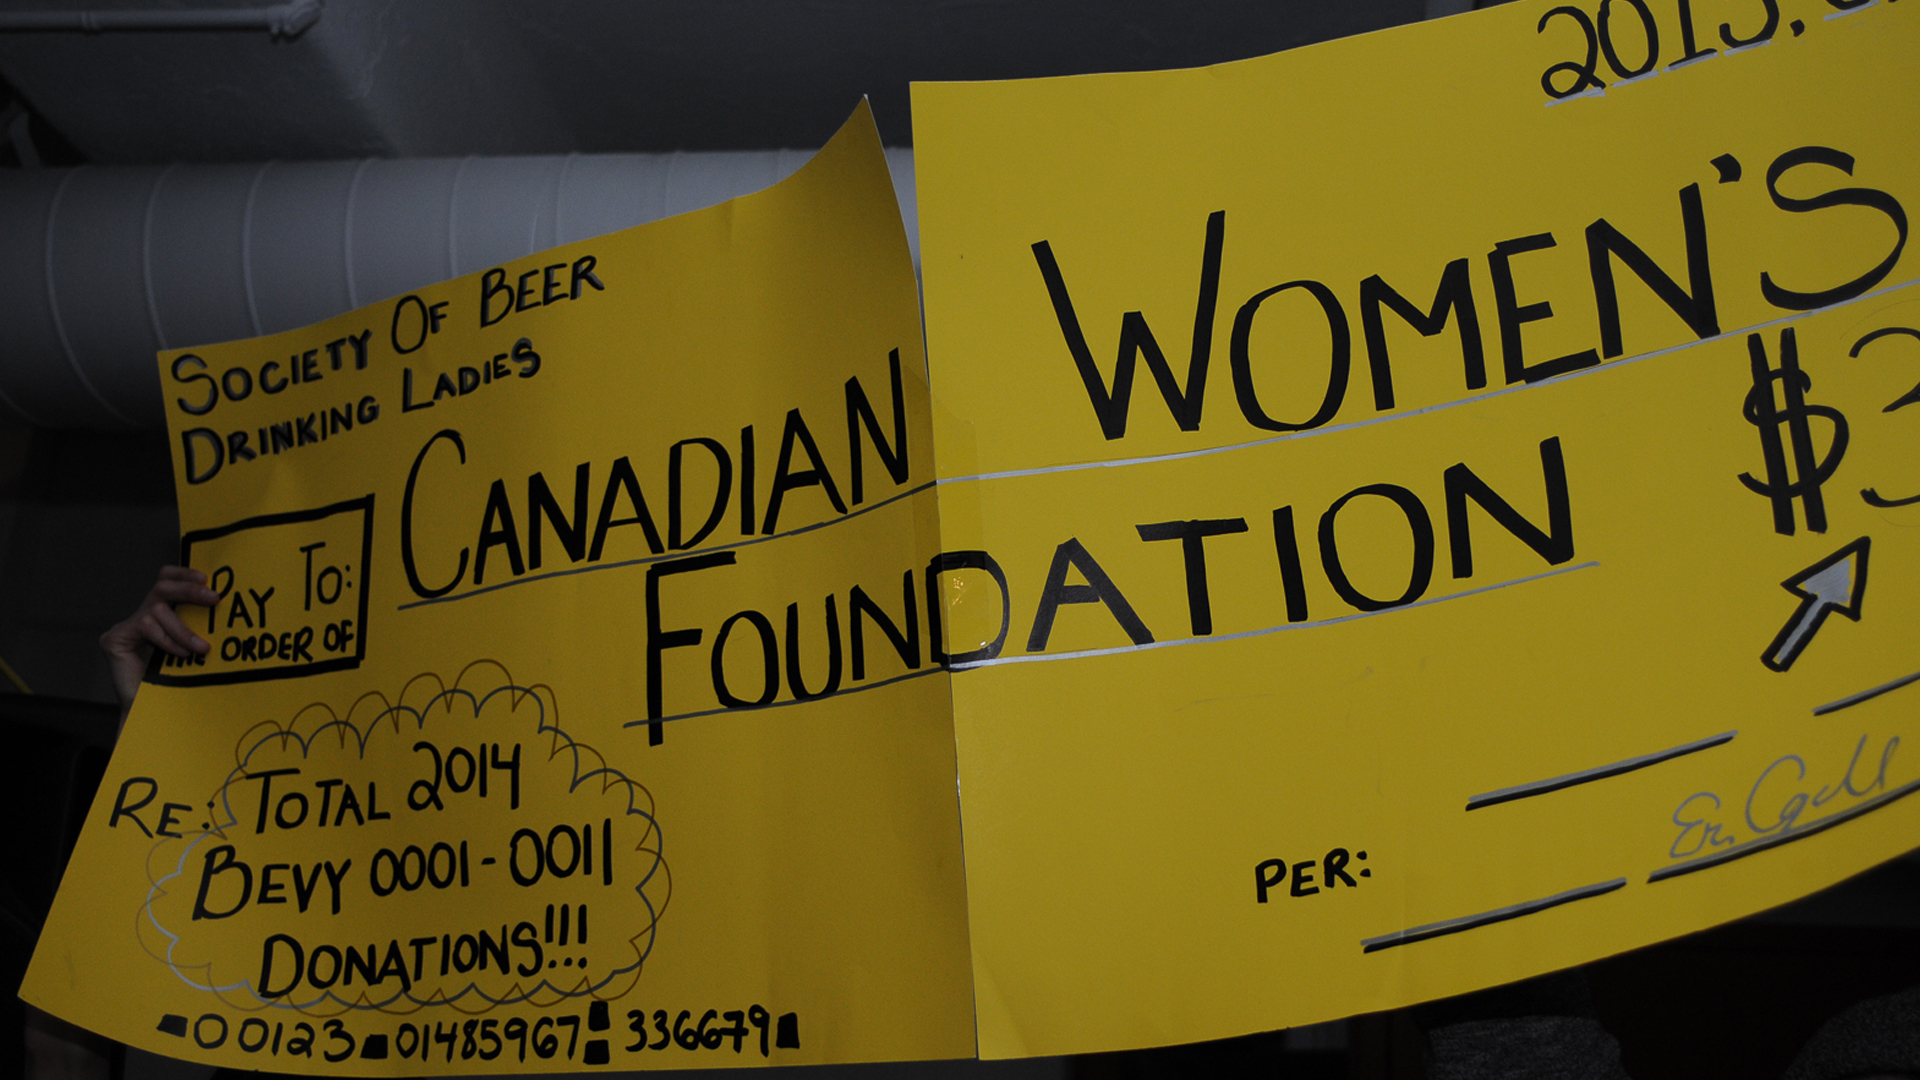 2015.
SOCIETY OF BEER
DRINKING LADIES
PAY TO:
THE ORDER OF
CANADIAN WOMEN'S
FOUNDATION
$3
RE: TOTAL 2014
BEVY 0001-0011
DONATIONS!!!
PER:
00123 01485967 336679